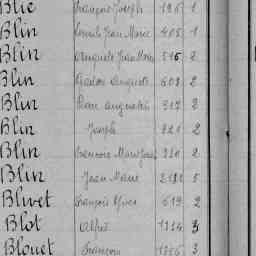 Blic François Joseph 196 1
Blin Louis Jean Marie 405 1
Blin Auguste Jean Marie 516 2
Blin Auguste 608 2
Blin Pierre Auguste 917 2
Blin Joseph 921 2
Blin François Marie 930 2
Blin Jean Marie 2180 5
Blivet François Yves 619 2
Blot Alfred 1234 3
Blouet François 3